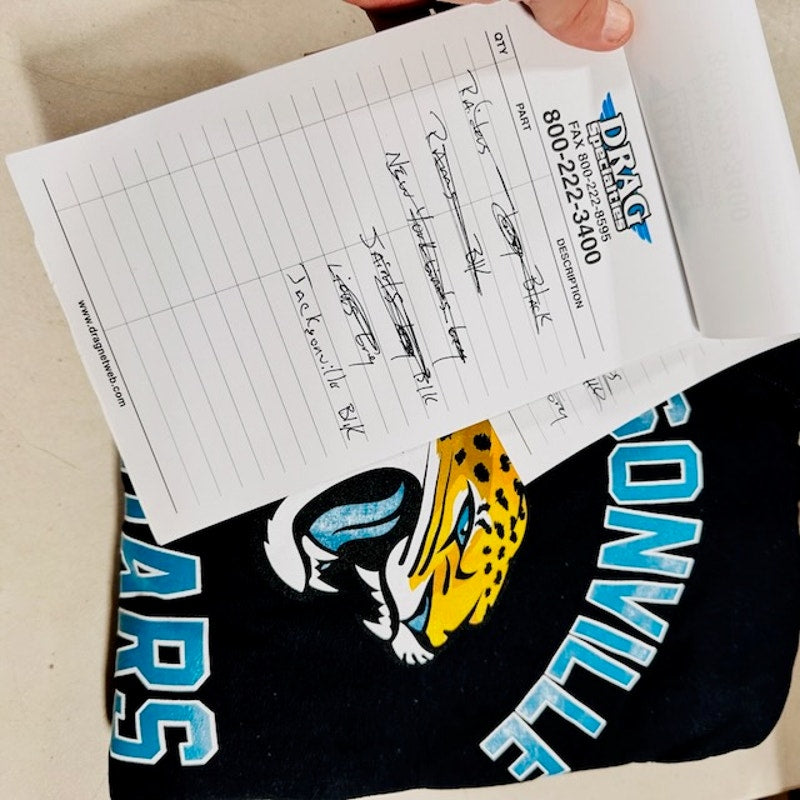 DRAG
Specialties
FAX 800-222-8595
800-222-3400
QTY PART DESCRIPTION
Raiders Black
Rams Blk
New York
Saints Blk
Lions Grey
Jacksonville Blk
www.dragnetweb.com
SONVILLE
ARS